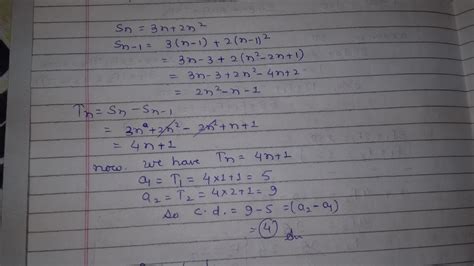 Sn = 3n + 2n²
Sn-1 = 3(n-1) + 2(n-1)²
= 3n - 3 + 2(n² - 2n + 1)
= 3n - 3 + 2n² - 4n + 2
= 2n² - n - 1
Tn = Sn - Sn-1
= 3n + 2n² - 2n² + n + 1
= 4n + 1
now. we have Tn = 4n+1
a1 = T1 = 4×1+1 = 5
a2 = T2 = 4×2+1 = 9
So c.d. = 9-5 = (a2 - a1)
= 4